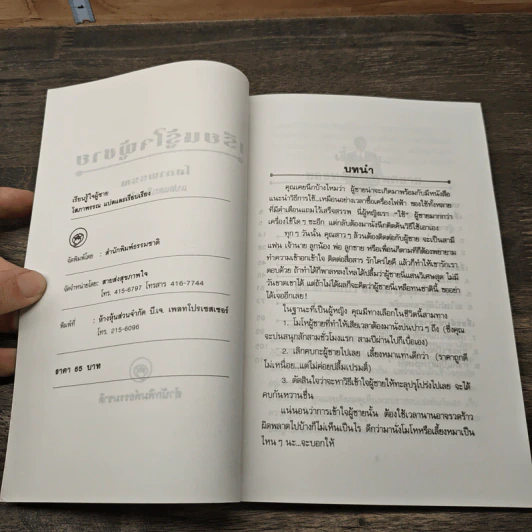 เรียนรู้ใจผู้ชาย
โสภาพรรณ แปลและเรียบเรียง
จัดพิมพ์โดย : สำนักพิมพ์ธรรมชาติ
จัดจำหน่ายโดย: สายส่งสุขภาพใจ
โทร. 415-6797 โทรสาร 416-7744
พิมพ์ที่ : ห้างหุ้นส่วนจำกัด บี.เจ. เพลทโปรเซสเซอร์
โทร. 215-6096
ราคา 65 บาท
บทนำ
คุณเคยนึกบ้างไหมว่า ผู้ชายน่าจะเกิดมาพร้อมกับมีหนังสือ
แนะนำวิธีการใช้...เหมือนอย่างเวลาซื้อเครื่องไฟฟ้า ของใช้ทั้งหลาย
ที่มีคำเตือนแถมไว้เสร็จสรรพ นี่ผู้หญิงเรา "ใช้" ผู้ชายมากกว่า
เครื่องใช้ใด ๆ ซะอีก แต่กลับต้องมานั่งคิดค้นวิธีใช้เอาเอง
ทุก ๆ วันนั้น คุณสาว ๆ ล้วนต้องติดต่อกับผู้ชาย จะเป็นสามี
แฟน เจ้านาย ลูกน้อง พ่อ ลูกชาย หรือเพื่อนก็ตามทีก็ต้องพยายาม
ทำความเข้าอกเข้าใจ ติดต่อสื่อสาร รักใคร่ไยดี แล้วก็ทำให้เขารักเรา
ตอบด้วย ถ้าทำได้ก็พาลหลงใหลได้ปลื้มว่าผู้ชายนี่แสนวิเศษสุด ไม่มี
วันขาดเขาได้ แต่ถ้าไม่ได้ผลก็จะคิดว่าผู้ชายนี่เหลือทนชาตินี้ ขออย่า
ได้เจออีกเลย!
ในฐานะที่เป็นผู้หญิง คุณมีทางเลือกในชีวิตนี้สามทาง
1. โมโหผู้ชายที่ทำให้เสียเวลาต้องมานั่งบ่นปาว ๆ ถึง (ซึ่งคุณ
จะบ่นสนุกสักสามชั่วโมงแรก สามปีผ่านไปก็เบื่อเอง)
2. เลิกคบกะผู้ชายไปเลย เลี้ยงหมาแทนดีกว่า (ราคาถูกดี
ไม่เหนื่อย...แต่ไม่ค่อยปลื้มเปรมดิ์)
3. ตัดสินใจว่าจะหาวิธีเข้าใจผู้ชายให้ทะลุปรุโปร่งไปเลย จะได้
คบกันหวานชื่น
แน่นอนว่าการเข้าใจผู้ชายนั้น ต้องใช้เวลานานอาจรวดร้าว
ผิดพลาดไปบ้างก็ไม่เห็นเป็นไร ดีกว่ามานั่งโมโหหรือเลี้ยงหมาเป็น
ไหน ๆ นะ...จะบอกให้